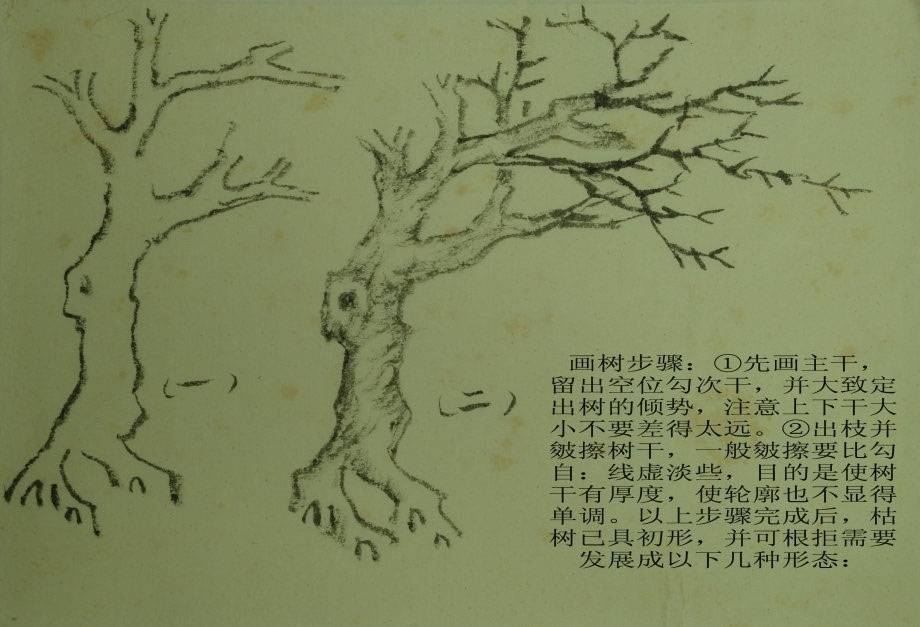 (一)
(二)
画树步骤：①先画主干，
留出空位勾次干，并大致定
出树的倾势，注意上下干大
小不要差得太远。②出枝并
皴擦树干，一般皴擦要比勾
自：线虚淡些，目的是使树
干有厚度，使轮廓也不显得
单调。以上步骤完成后，枯
树已具初形，并可根拒需要
发展成以下几种形态：